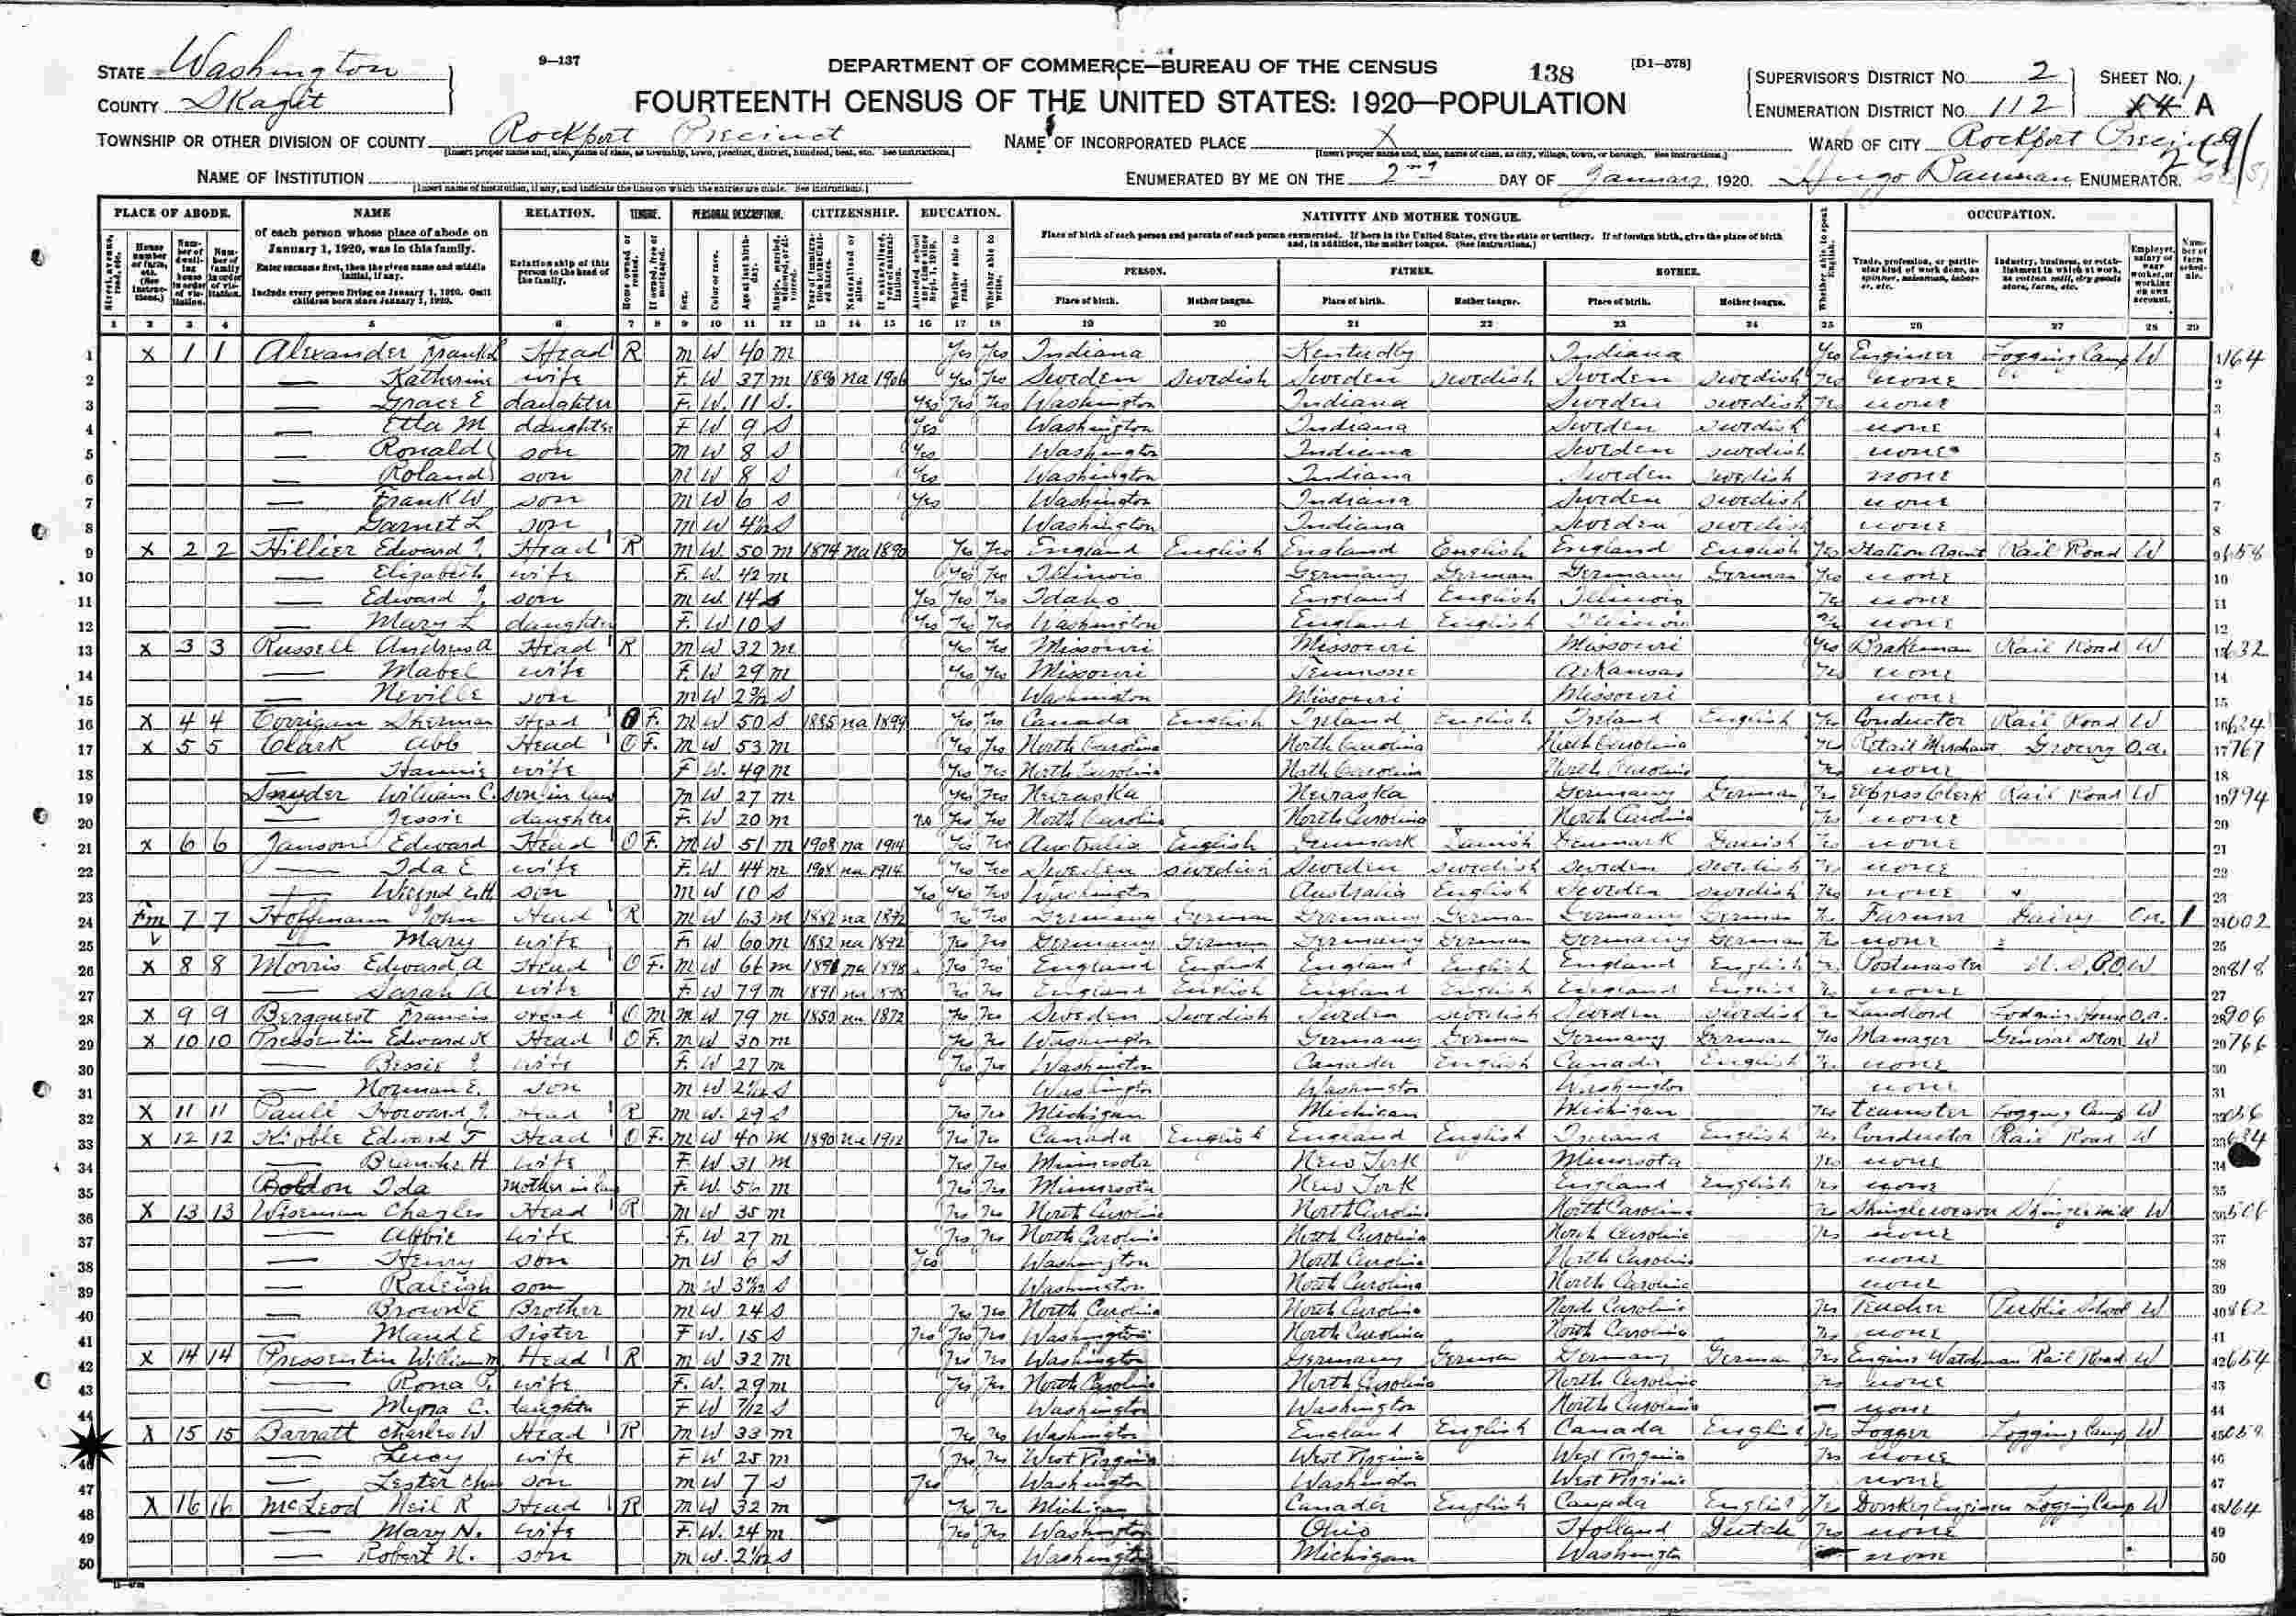 9—137
DEPARTMENT OF COMMERCE—BUREAU OF THE CENSUS
138
[D1-578]
STATE Washington
COUNTY Skagit
FOURTEENTH CENSUS OF THE UNITED STATES: 1920—POPULATION
SUPERVISOR'S DISTRICT No. 2
SHEET No.
ENUMERATION DISTRICT No. 112
A
TOWNSHIP OR OTHER DIVISION OF COUNTY Rockport Precinct
NAME OF INCORPORATED PLACE X
WARD OF CITY Rockport Precinct
[Insert proper name and, also, name of class, as township, town, precinct, district, hundred, beat, etc. See instructions.]
[Insert proper name and, also, name of class, as city, village, town, or borough. See instructions.]
NAME OF INSTITUTION
[Insert name of institution, if any, and indicate the lines on which the entries are made. See instructions.]
ENUMERATED BY ME ON THE 2nd DAY OF January, 1920. Hugo Bauman ENUMERATOR.
PLACE OF ABODE. NAME RELATION. TENURE. PERSONAL DESCRIPTION. CITIZENSHIP. EDUCATION. NATIVITY AND MOTHER TONGUE. OCCUPATION.
of each person whose place of abode on January 1, 1920, was in this family.
Enter surname first, then the given name and middle initial, if any.
Include every person living on January 1, 1920. Omit children born since January 1, 1920.
Relationship of this person to the head of the family.
Place of birth of each person and parents of each person enumerated. If born in the United States, give the state or territory. If of foreign birth, give the place of birth and, in addition, the mother tongue. (See instructions.)
PERSON. FATHER. MOTHER.
Place of birth. Mother tongue. Place of birth. Mother tongue. Place of birth. Mother tongue.
1 2 3 4 5 6 7 8 9 10 11 12 13 14 15 16 17 18 19 20 21 22 23 24 25 26 27 28 29
1 X 1 1 Alexander Frank L Head R M W 40 M Yes Yes Indiana Kentucky Indiana Yes Engineer Logging Camp W
2 — Katherine wife F W 37 M 1890 na 1906 Yes Yes Sweden Swedish Sweden Swedish Sweden Swedish Yes none
3 — Grace E daughter F W 11 S Yes Yes Yes Washington Indiana Sweden Swedish Yes none
4 — Etta M daughter F W 9 S Yes Washington Indiana Sweden Swedish none
5 — Ronald son M W 8 S Yes Washington Indiana Sweden Swedish none
6 — Roland son M W 8 S Yes Washington Indiana Sweden Swedish none
7 — Frank W son M W 6 S Yes Washington Indiana Sweden Swedish none
8 — Garnet L son M W S Washington Indiana Sweden Swedish none
9 X 2 2 Hillier Edward J. Head R M W 50 M 1874 na 1890 Yes Yes England English England English England English Yes Station Agent Rail Road W
10 — Elizabeth wife F W 42 M Yes Yes Illinois Germany German Germany German Yes none
11 — Edward J. son M W 14 S Yes Yes Yes Idaho England English Illinois Yes none
12 — Mary L daughter F W 10 S Yes Yes Yes Washington England English Illinois Yes none
13 X 3 3 Russell Andrew A Head R M W 32 M Yes Yes Missouri Missouri Missouri Yes Brakeman Rail Road W
14 — Mabel wife F W 29 M Yes Yes Missouri Arkansas Yes none
15 — Neville son M W S Washington Missouri Missouri none
16 X 4 4 Corrigan Sherman Head O F. M W 50 S 1885 na 1899 Yes Yes Canada English Ireland English Ireland English Yes Conductor Rail Road W
17 X 5 5 Clark Abb Head O F. M W 53 M Yes Yes North Carolina North Carolina North Carolina Yes Retail Merchant Grocery O.a. 767
18 — wife F W 49 M Yes Yes North Carolina North Carolina North Carolina Yes none
19 Snyder William C. son in law M W 27 M Yes Yes Nebraska Nebraska Germany German Yes Express Clerk Rail Road W
20 — Jessie daughter F W 20 M no Yes Yes North Carolina North Carolina North Carolina Yes none
21 X 6 6 Janson Edward Head O F. M W 51 M 1908 na 1914 Yes Yes Australia English Denmark Danish Denmark Danish Yes none
22 — Ida E wife F W 44 M 1908 na 1914 Yes Yes Sweden Swedish Sweden Swedish Sweden Swedish Yes none
23 — son M W 10 S Yes Yes Yes Washington Australia English Sweden Swedish Yes none
24 Fm 7 7 Hoffmann John Head R M W 63 M 1882 na 1892 Yes Yes Germany German Germany German Germany German Yes Farmer Dairy 1
25 — Mary wife F W 60 M 1882 na 1892 Yes Yes Germany German Germany German Germany German Yes none
26 X 8 8 Morris Edward A Head O F. M W 66 M 1891 na 1898 Yes Yes England English England English England English Yes Postmaster U.S. P.O. W
27 — Sarah A wife F W 79 M 1891 na 1898 Yes Yes England English England English England English none
28 X 9 9 Bergquest Francis Head O M M W 79 M 1850 na 1872 Yes Yes Sweden Swedish Sweden Swedish Sweden Swedish Yes Landlord Lodging House O.a. 906
29 X 10 10 Pressentin Edward K Head O F. M W 30 M Yes Yes Washington Germany German Germany German Yes Manager General Store W 766
30 — Bessie J. wife F W 27 M Yes Yes Washington Canada English Canada English Yes none
31 — Norman E. son M W S Washington Washington Washington none
32 X 11 11 Paull Howard J. Head R M W 29 S Yes Yes Michigan Michigan Michigan Yes teamster Logging Camp W
33 X 12 12 Edward T Head O F. M W 40 M 1890 na 1912 Yes Yes Canada English England English Ireland English Yes Conductor Rail Road W
34 — Blanche H wife F W 31 M Yes Yes Minnesota New York Minnesota Yes none
35 Boldon Ida Mother in law F W 56 M Yes Yes Minnesota New York England English Yes none
36 X 13 13 Wiseman Charles Head R M W 35 M Yes Yes North Carolina North Carolina North Carolina Yes Shingle weaver mill W
37 — Abbie wife F W 27 M Yes Yes North Carolina North Carolina North Carolina Yes none
38 — Henry son M W 6 S Yes Washington North Carolina North Carolina none
39 — Raleigh son M W S Washington North Carolina North Carolina none
40 — Brown E Brother M W 24 S Yes Yes North Carolina North Carolina North Carolina Yes Teacher Public School W
41 — Maud E Sister F W 15 S Yes Yes Yes Washington North Carolina North Carolina Yes none
42 X 14 14 Pressentin William M. Head R M W 32 M Yes Yes Washington Germany German Germany German Yes Engine Watchman Rail Road W
43 — Rona P. wife F W 29 M Yes Yes North Carolina North Carolina North Carolina Yes none
44 — Myra C. daughter F W 7/12 S Washington Washington North Carolina — none
45 X 15 15 Barratt Charles W Head R M W 33 M Yes Yes Washington England English Canada English Yes Logger Logging Camp W
46 — Lucy wife F W 25 M Yes Yes West Virginia West Virginia West Virginia Yes none
47 — Lester Chas son M W 7 S Yes Washington Washington West Virginia none
48 X 16 16 McLeod Neil R Head R M W 32 M Yes Yes Michigan Canada English Canada English Yes Donkey Engineer Logging Camp W
49 — Mary N. wife F W 24 M Yes Yes Washington Ohio Holland Dutch Yes none
50 — Robert N. son M W S Washington Michigan Washington none